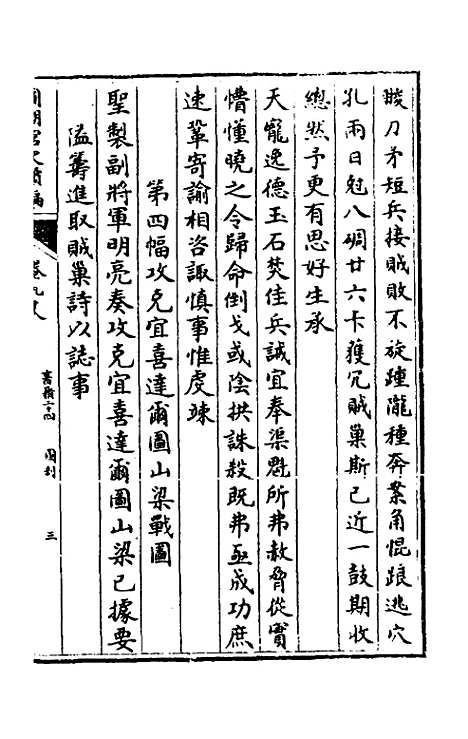 酸刀矛短兵接賊敗不旋踵隴種奔業角惃踉逃穴
孔兩日尅八碉廿六卡獲冗賊巢斯已近一鼓期收
總然予更有思好生承
天寵逸德玉石焚佳兵誠宜奉渠魁所弗赦脅從實
懵懂曉之令歸命倒戈或陰拱誅殺既弗亟成功庶
速鞏寄諭相咨諏慎事惟虔竦
第四幅攻克宜喜達爾圖山梁戰圖
聖製副將軍明亮奏攻克宜喜達爾圖山梁已據要
隘籌進取賊巢詩以誌事
國朝宮史續編
卷九
書籍二十四
圖刻
三